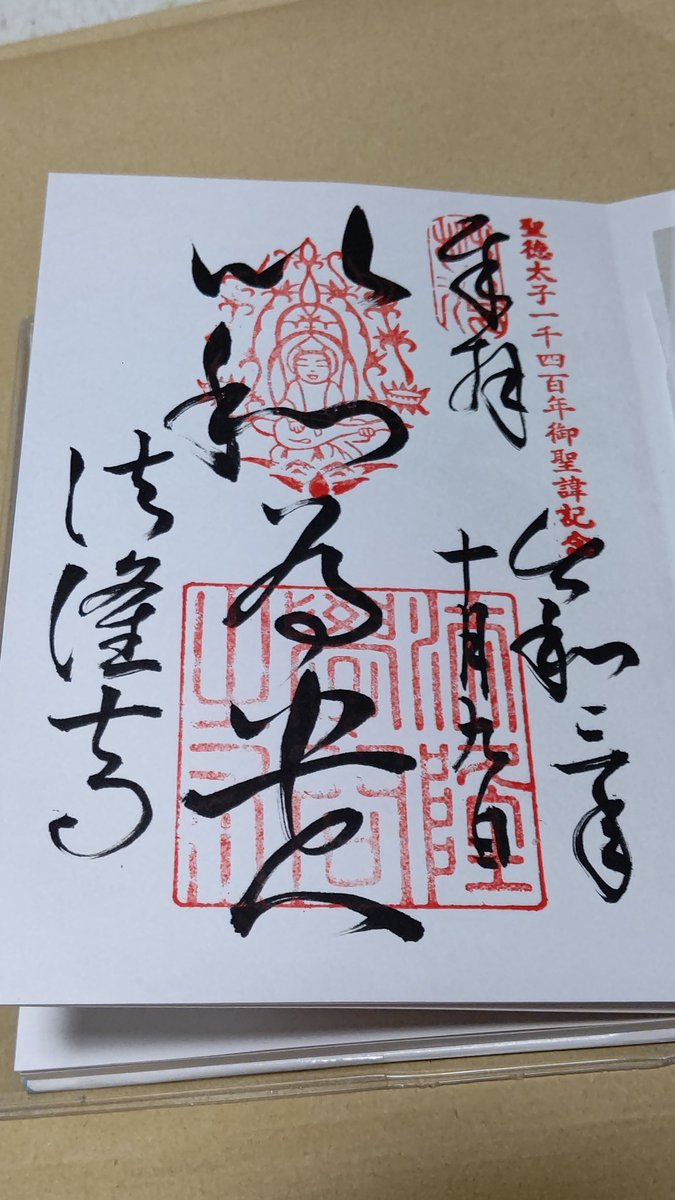 聖徳太子一千四百年御聖諱記念
奉拝
令和三年
十月九日
以和為貴
法隆寺